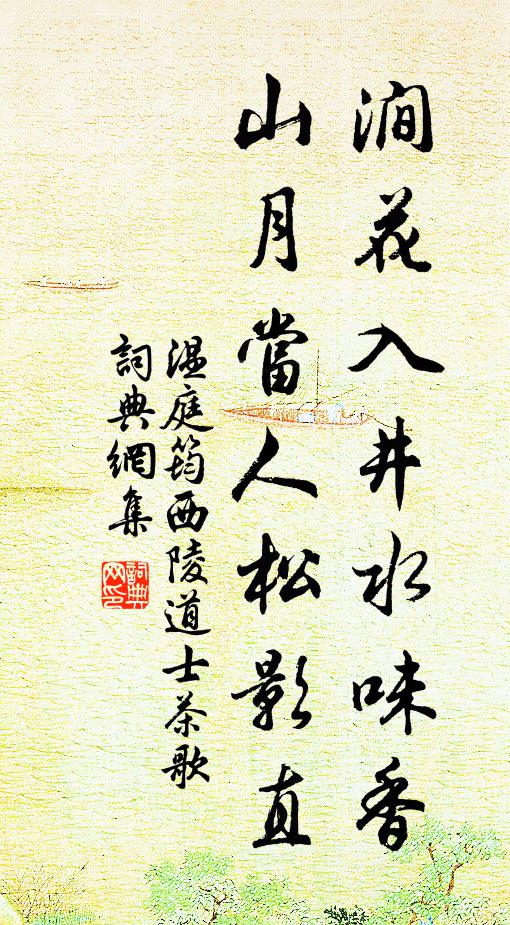 澗花入井水味香
山月當人松影直
温庭筠西陵道士茶歌
詞典網集
詞典网印